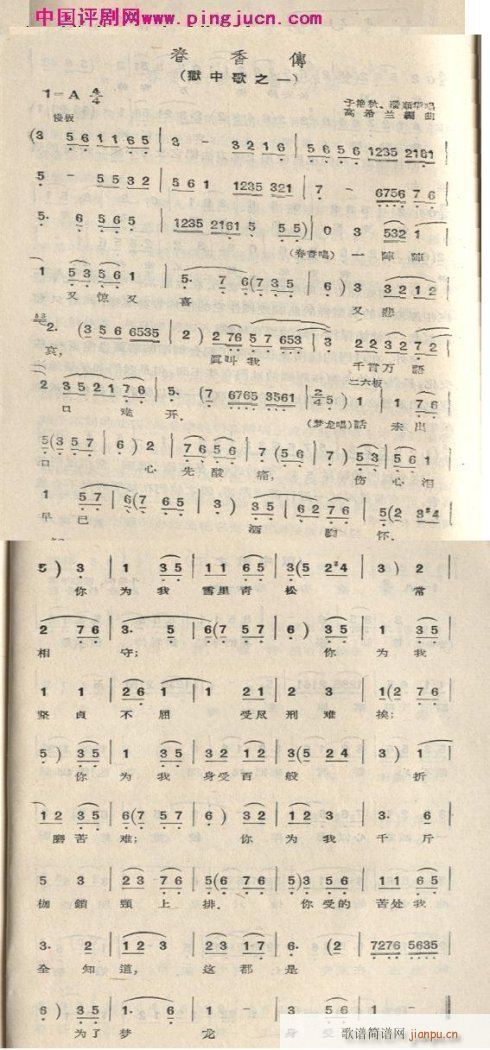 中国评剧网www.pingjucn.com
春香傳
(獄中歌之一)
1=A 4/4
慢板
(3 5 6 1 1 6 5 | 3 - 3 2 1 6 | 5 6 5 6 1235 2161 |
5 - 5 3 2 | 5 6 1 1235 321 | 7 - 6756 7 6 |
5. 6 5 6 5 | 1235 2161 5 5) | 0 3 532 1 |
(春香唱) 一陣陣
1 5 3 5 6 1 | 5. 7 6 (7 3 5 | 6) 3 3 2 1 2 |
又惊又喜 又悲
2. (3 5 6 6535 | 2) 2 76 5 7 653 | 3 2 2 3 2 7 2 |
哀, 真叫我 千言万語
二六板
2 3 5 2 1 7 6 | 5. (7 6765 3561 | 2/4 5) 1 | 1 7 6 |
口难开. (梦龙唱)話未出
5 (3 5 7 | 6) 2 | 7 6 5 6 | 1 (7 6 | 5 3) 5 | 5 6 1 |
口 心先酸痛, 伤心泪
早已 洒胸怀.
5) 3 | 1 3 5 | 1 1 6 5 | 3 (5 2#4 | 3) 2 |
你为我雪里青松 常
2 7 6 | 3. 5 | 6 (7 5 7 | 6) 3 5 | 1 3 5 |
相守; 你为我
1 1 | 2 6 1 | 1 2 1 | 2 3 | 1 (2 7 6 |
坚貞不屈 受尽刑难挨;
5) 3 5 | 1 3 5 | 3 2 1 2 | 3 (5 2 4 | 3) 5 |
你为我身受百般 折
1 2 3 5 | 2 (7 5 7 | 6) (3 2 | 1 2 3 5 | 3. 6 |
磨苦难; 你为我千斤
5 3 | 2 3 7 6 | 5 (6 7 6 | 5) 3 5 6 | 1 6 5 |
枷鎖頸上排. 你受的苦处我
3. 2 | 1 2 3 | 2 3 1 7 | 6. (2 | 7276 5635 |
全知道, 这都是
为了梦龙 身受
歌谱简谱网 jianpu.cn